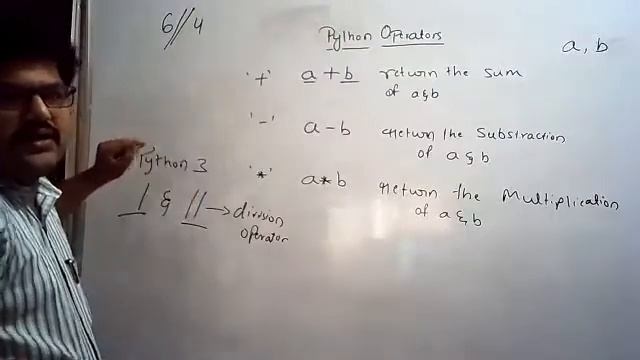 6//4
Python Operators
a, b
'+' a + b return the sum
of a&b
'-' a - b return the Substraction
of a & b
'*' a*b return the Multiplication
of a & b
Python 3
/ & // → division
operator